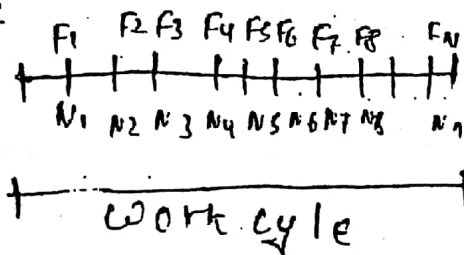 F1 F2 F3 F4 F5 F6 F7 F8 FN
N1 N2 N3 N4 N5 N6 N7 N8 N9
work cycle